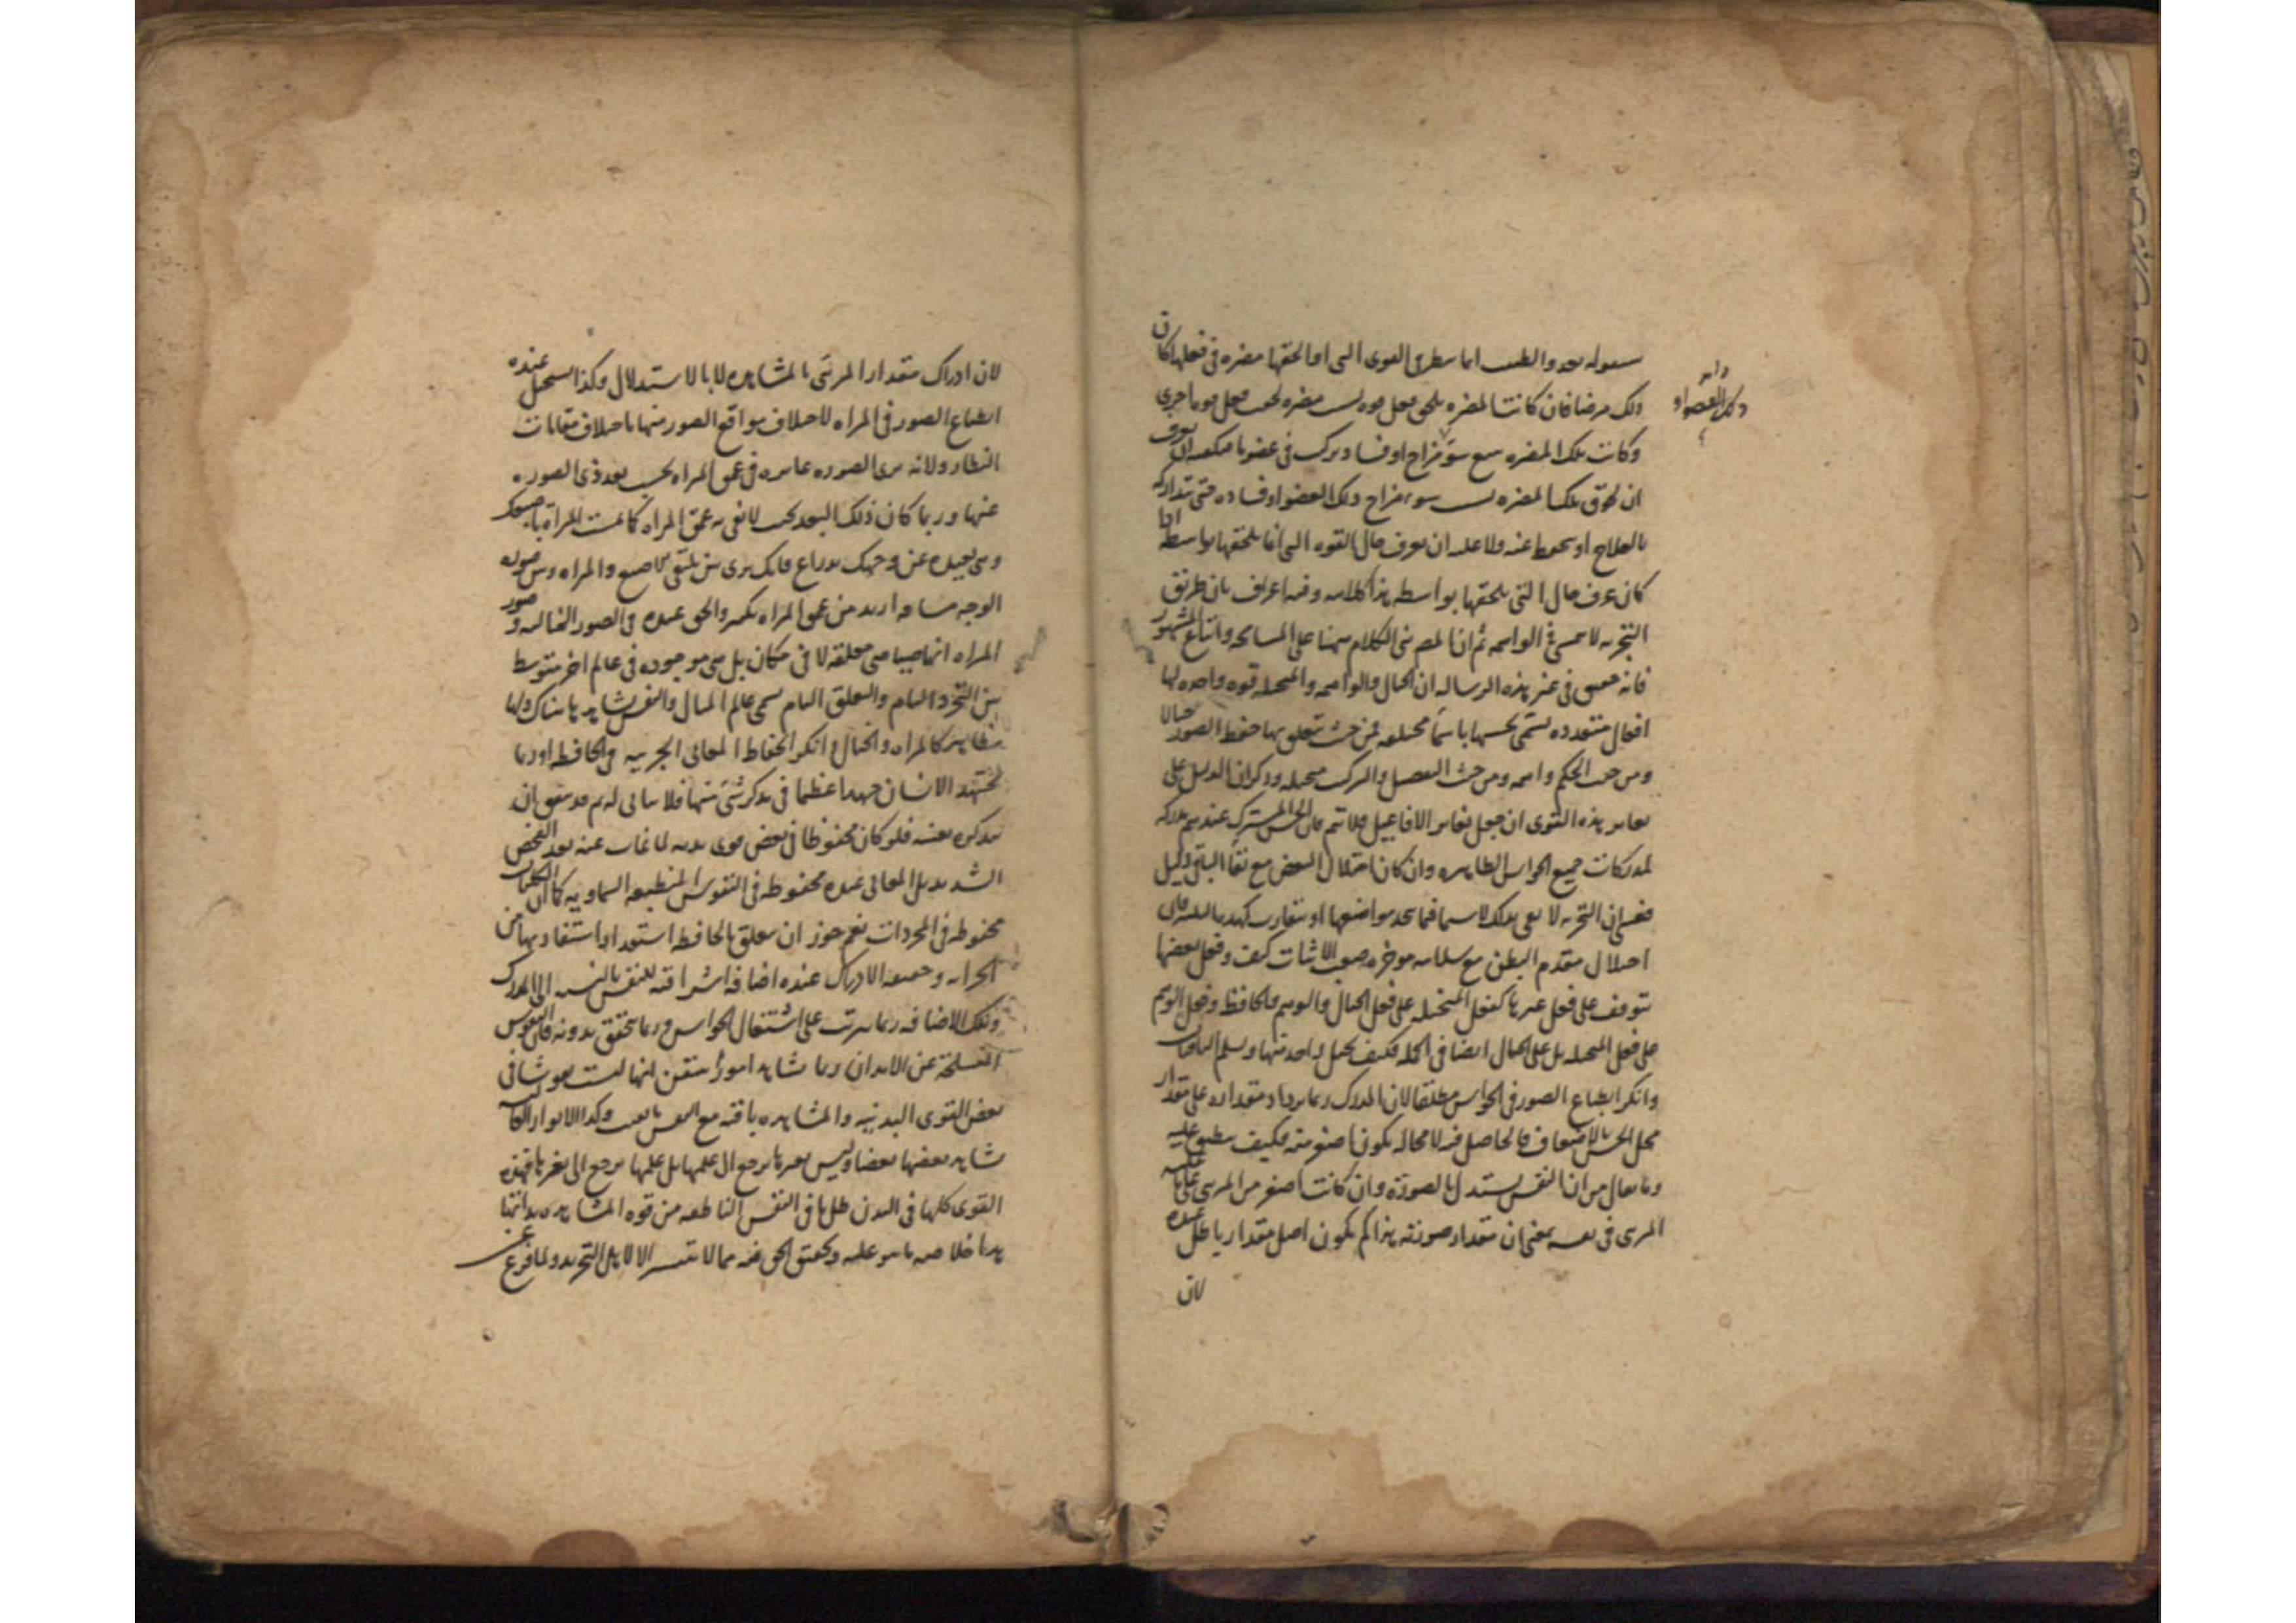 بقوله بعد والطبيب انما ينظر في القوى التي اذا لحقها مضره في فعلها كان
ذلك مرضا فان كانت المضره يلحق فعل قوه بسبب مضره لحقت فعل قوه اخرى
وكانت تلك المضره تتبع سوء مزاج او فساد تركيب في عضو ما فيكفيه ان يعرف
ان لحوق تلك المضره بسبب سوء مزاج ذلك العضو او فساده حتى يتداركه
بالعلاج او يتحفظ عنه ولا عليه ان يعرف حال القوه التي انما يلحقها بواسطه اذا
كان عرف حال التي يلحقها بواسطه هذا كلامه وفيه اعتراف بان طريق
التجربه لا يتمشى في الواهمه ثم ان المصـ بنى الكلام هيهنا على المسامحه واتباع المشهور
فانه في غير هذه الرساله ان الخيال والواهمه والمتخيله قوه واحده لها
افعال متعدده تسمى بحسبها باسماء مختلفه فمن حيث تتعلق بها حفظ الصور خيالا
ومن حيث الحكم واهمه ومن حيث التفصيل والتركيب متخيله وذكر ان الدليل على
تغاير هذه القوى ان جعل تغاير الافاعيل فلا يتم فان الحس المشترك عندهم مدركه
لمدركات جميع الحواس الظاهره وان كان اختلال البعض مع بقاء الباقي دليل
التجربه لا تفي بذلك لا سيما فيما يتحد مواضعها او يتقارب
اختلال مقدم البطن مع سلامه موخره صعب الاثبات كيف وفعل بعضها
يتوقف على فعل غيرها كفعل المتخيله على فعل الخيال والوهم والحافظ وفعل الوهم
على فعل المتخيله بل على الخيال ايضا في الجمله فكيف يختل واحد منها ويسلم الباقيات
وانكر انطباع الصور في الحواس مطلقا لان المدرك ربما يزداد مقداره على مقدار
محل الحس بالاضعاف فالحاصل فيه لا محاله يكون اصغر منه فكيف ينطبع عليه
وما يقال من ان النفس يستدل بالصوره وان كانت اصغر من المرئي على ما عليه
المرئي في نفسه بمعنى ان مقدار صورته هذا كم يكون اصل مقدارها باطل عنده
لان
ذلك العضو او
لان ادراك مقدار المرئي بالمشاهده لا بالاستدلال وكذا يستحيل عنده
انطباع الصور في المراه لاختلاف مواقع الصور منها باختلاف مقامات
النظار ولانه يرى الصوره غايره في عمق المراه بحسب بعد ذي الصوره
عنها وربما كان ذلك البعد بحيث لا يفي به عمق المراه كما لمست المراه باصبعك
وهي بعيده عن وجهك بذراع فانك ترى بين ملتقى الاصبع والمراه وبين صوره
الوجه مسافه ازيد من عمق المراه بكثير والحق عنده في الصور الخياليه وصور
المراه انها صياصي معلقه لا في مكان بل هي موجوده في عالم اخر متوسط
بين التجرد التام والتعلق التام يسمى عالم المثال والنفس يشاهدها هناك ولها
مظاهر كالمراه والخيال وانكر انحفاظ المعاني الجزييه في الحافظه اذ ربما
يجتهد الانسان جهدا عظيما في تذكر شئ منها فلا يتاتى له ثم قد يتفق ان
يتذكره بعينه فلو كان محفوظا في بعض قوى بدنه لما غاب عنه بعد الفحص
الشديد بل المعاني عنده محفوظه في النفوس المنطبعه السماويه كما ان الكليات
محفوظه في المجردات نعم جوز ان يتعلق بالحافظه استعداد استفادتها من
الخزانه وحقيقه الادراك عنده اضافه اشراقيه للنفس بالنسبه الى المدرك
وتلك الاضافه ربما يترتب على اشتغال الحواس وربما يتحقق بدونه فان النفوس
المنسلخه عن الابدان ربما تشاهد امورا يتيقن انها ليست نقوشا في
بعض القوى البدنيه والمشاهده باقيه مع النفس ما بقيت وكذا الانوار الكاليه
تشاهد بعضها بعضا وليس بصرها يرجع الى علمها بل علمها يرجع الى بصرها فهذه
القوى كلها في البدن ظل ما في النفس الناطقه من قوه المشاهده بذاتها
هذا خلاصه ما هو عليه وتحقيق الحق فيه مما لا يتيسر الا لاهل التجريد ولما فرغ عن